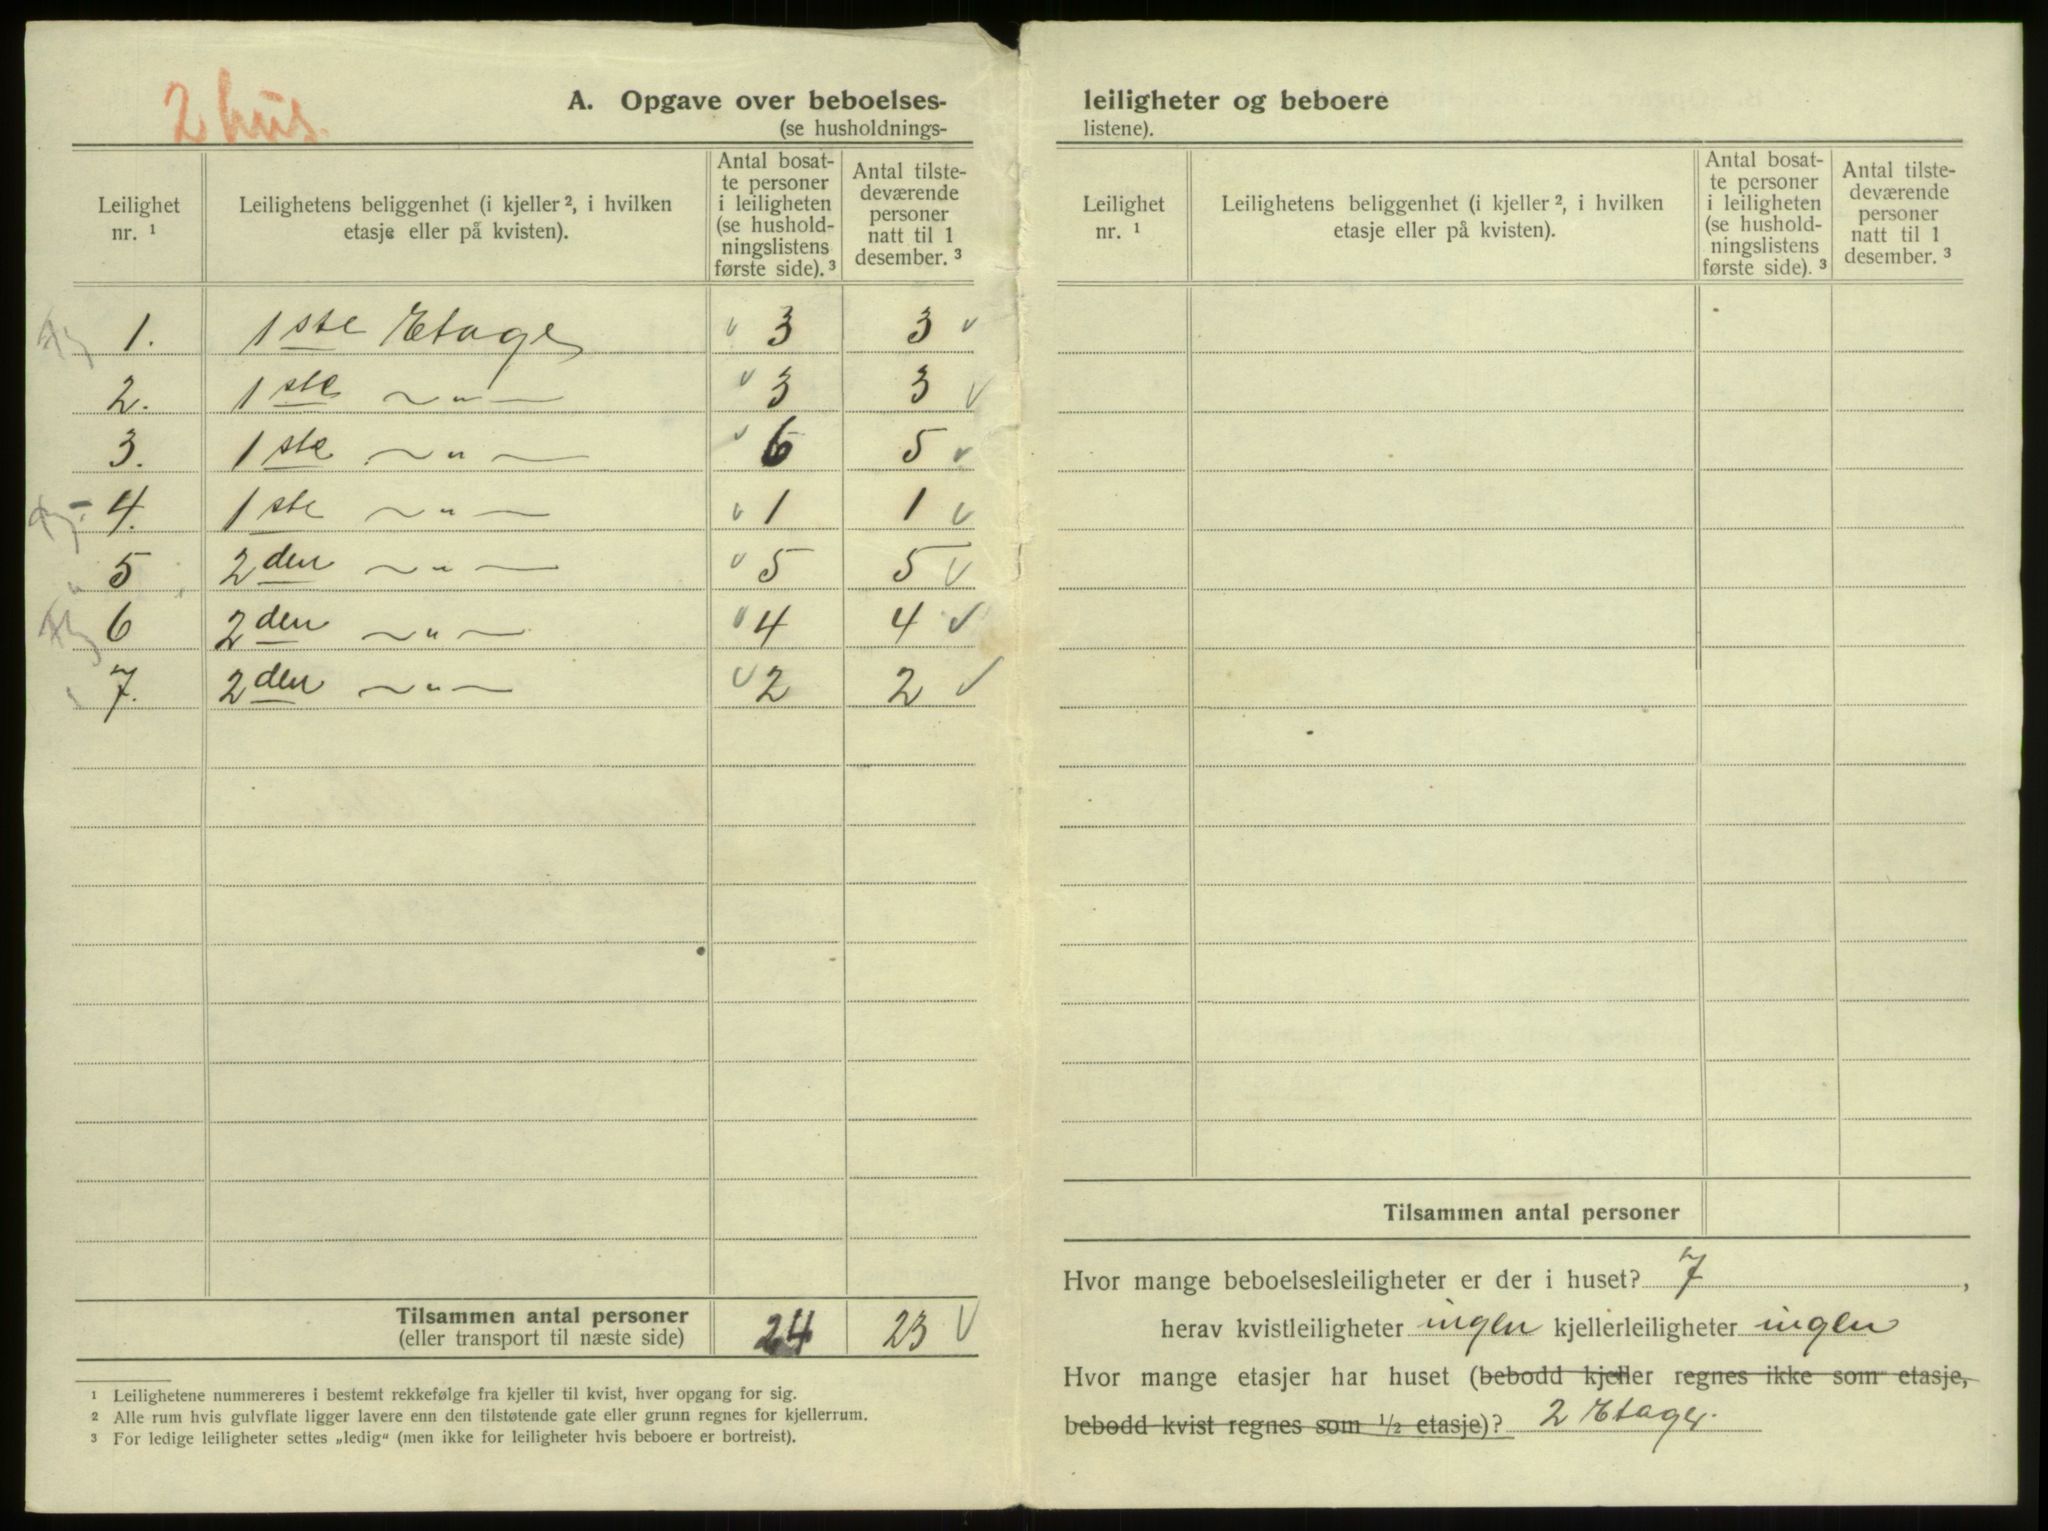 2 hus.
A. Opgave over beboelses-
(se husholdnings-
Leilighet nr. 1
Leilighetens beliggenhet (i kjeller 2, i hvilken etasje eller på kvisten).
Antal bosat-
te personer
i leiligheten
(se hushold-
ningslistens
første side). 3
Antal tilste-
deværende
personer
natt til 1
desember. 3
1. 1ste Etage v 3 3 v
2. 1ste ~ " — v 3 3 v
3. 1ste ~ " — v 6 5 v
4. 1ste ~ " — v 1 1 v
5 2den ~ " — v 5 5 v
6 2den ~ " — v 4 4 v
7. 2den ~ " — v 2 2 v
Tilsammen antal personer 24 23 v
(eller transport til næste side)
1 Leilighetene nummereres i bestemt rekkefølge fra kjeller til kvist, hver opgang for sig.
2 Alle rum hvis gulvflate ligger lavere enn den tilstøtende gate eller grunn regnes for kjellerrum.
3 For ledige leiligheter settes „ledig“ (men ikke for leiligheter hvis beboere er bortreist).
leiligheter og beboere
listene).
Leilighet nr. 1
Leilighetens beliggenhet (i kjeller 2, i hvilken etasje eller på kvisten).
Antal bosat-
te personer
i leiligheten
(se hushold-
ningslistens
første side). 3
Antal tilste-
deværende
personer
natt til 1
desember. 3
Tilsammen antal personer
Hvor mange beboelsesleiligheter er der i huset? 7,
herav kvistleiligheter ingen kjellerleiligheter ingen
Hvor mange etasjer har huset (bebodd kjeller regnes ikke som etasje,
bebodd kvist regnes som ½ etasje)? 2 Etager.